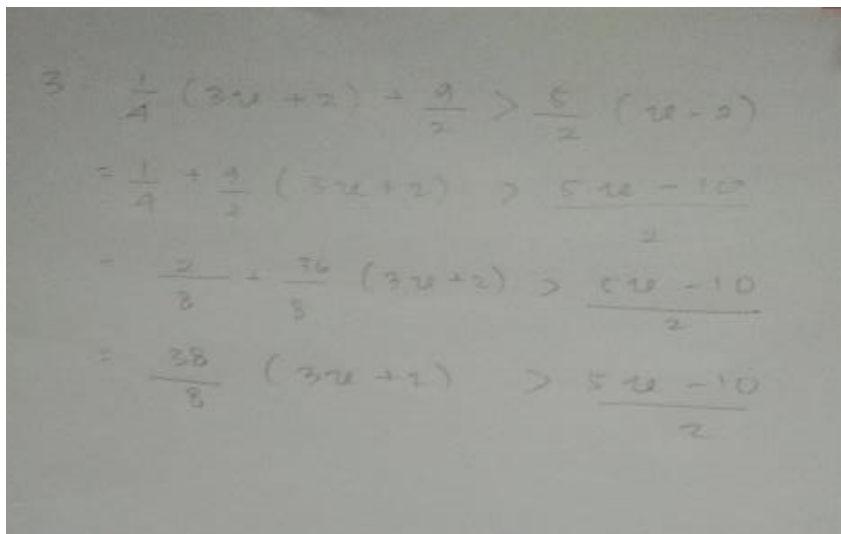 3 1/4 (3x + 2) + 9/2 > 5/2 (x - 2)
= 1/4 + 9/2 (3x + 2) > 5x - 10 / 2
= 2/8 + 36/8 (3x + 2) > 5x - 10 / 2
= 38/8 (3x + 2) > 5x - 10 / 2